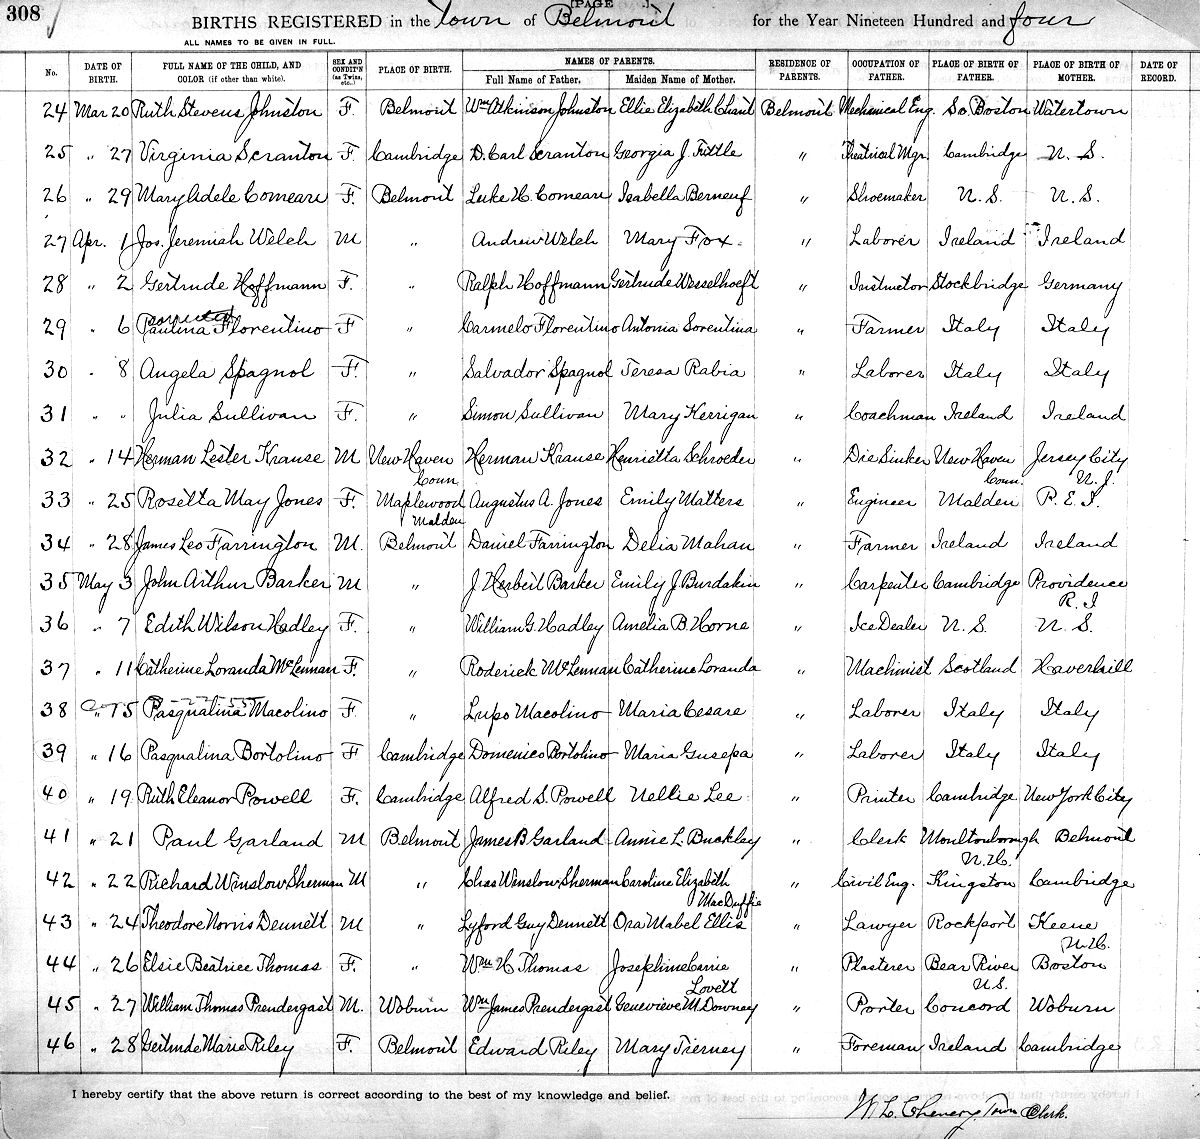 308
[PAGE .]
BIRTHS REGISTERED in the Town of Belmont for the Year Nineteen Hundred and four
ALL NAMES TO BE GIVEN IN FULL.
No. DATE OF BIRTH. FULL NAME OF THE CHILD, AND COLOR (if other than white). SEX AND CONDIT'N (as Twins, etc.) PLACE OF BIRTH. NAMES OF PARENTS. Full Name of Father. Maiden Name of Mother. RESIDENCE OF PARENTS. OCCUPATION OF FATHER. PLACE OF BIRTH OF FATHER. PLACE OF BIRTH OF MOTHER. DATE OF RECORD.
24 Mar 20 Ruth Stevens Johnston F. Belmont Wm Atkinson Johnston Ellie Elizabeth Chant Belmont Mechanical Eng. So. Boston Watertown
25 " 27 Virginia Scranton F. Cambridge D. Carl Scranton Georgia J. Tuttle " Theatrical Mgr. Cambridge N. S.
26 " 29 Mary Adele Comeau F. Belmont Luke H. Comeau Isabella Berneuf " Shoemaker N. S. N. S.
27 Apr. 1 Jos. Jeremiah Welch M " Andrew Welch Mary Fox " Laborer Ireland Ireland
28 " 2 Gertrude Hoffmann F. " Ralph Hoffmann Gertrude Wesselhoeft " Instructor Stockbridge Germany
corrected
29 " 6 Paulina Florentino F " Carmelo Florentino Antonia Sorentina " Farmer Italy Italy
30 " 8 Angela Spagnol F. " Salvador Spagnol Teresa Rabia " Laborer Italy Italy
31 " " Julia Sullivan F. " Simon Sullivan Mary Kerrigan " Coachman Ireland Ireland
32 " 14 Herman Lester Krause M New Haven Conn. Herman Krause Henrietta Schroeder " Die Sinker New Haven Conn. Jersey City N. J.
33 " 25 Rosetta May Jones F. Maplewood Malden Augustus A. Jones Emily Matters " Engineer Malden P. E. I.
34 " 28 James Leo Farrington M. Belmont Daniel Farrington Delia Mahan " Farmer Ireland Ireland
35 May 3 John Arthur Barker M " J. Herbert Barker Emily J. Burdakin " Carpenter Cambridge Providence R. I
36 " 7 Edith Wilson Hadley F. " William G. Hadley Amelia B. Horne " Ice Dealer N. S. N. S.
37 " 11 Catherine Loranda McLennan F. " Roderick McLennan Catherine Loranda " Machinist Scotland Haverhill
38 " 15 Pasqualina Macolino F. " Lupo Macolino Maria Cesare " Laborer Italy Italy
39 " 16 Pasqualina Bortolino F Cambridge Domenico Bortolino Maria Gusepa " Laborer Italy Italy
40 " 19 Ruth Eleanor Powell F. Cambridge Alfred S. Powell Nellie Lee " Printer Cambridge New York City
41 " 21 Paul Garland M Belmont James B Garland Annie L. Buckley " Clerk Moultonborough N. H. Belmont
42 " 22 Richard Winslow Sherman M " Chas Winslow Sherman Caroline Elizabeth MacDuffie " Civil Eng. Kingston Cambridge
43 " 24 Theodore Norris Dennett M " Lyford Guy Dennett Ora Mabel Ellis " Lawyer Rockport Keene N. H.
44 " 26 Elsie Beatrice Thomas F. " Wm H Thomas Josephine Carrie Lovett " Plasterer Bear River N. S. Boston
45 " 27 William Thomas Prendergast M. Woburn Wm James Prendergast Genevieve M. Downey " Porter Concord Woburn
46 " 28 Gertrude Marie Riley F. Belmont Edward Riley Mary Tierney " Foreman Ireland Cambridge
I hereby certify that the above return is correct according to the best of my knowledge and belief.
W. L. Chenery, Town Clerk.